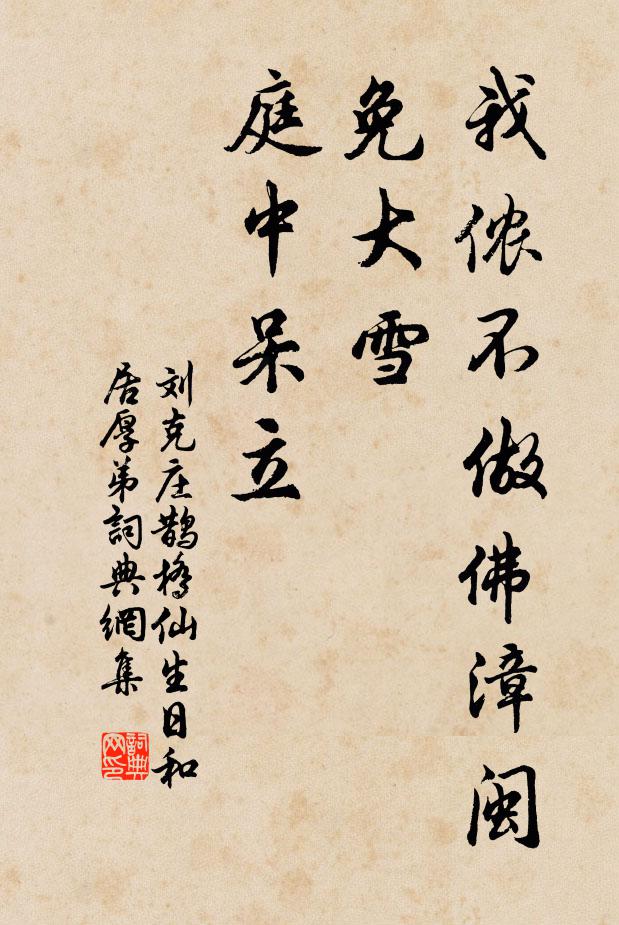 我侬不做佛漳闽
免大雪
庭中呆立
刘克庄鹊桥仙生日和
居厚弟詞典網集
詞典网印